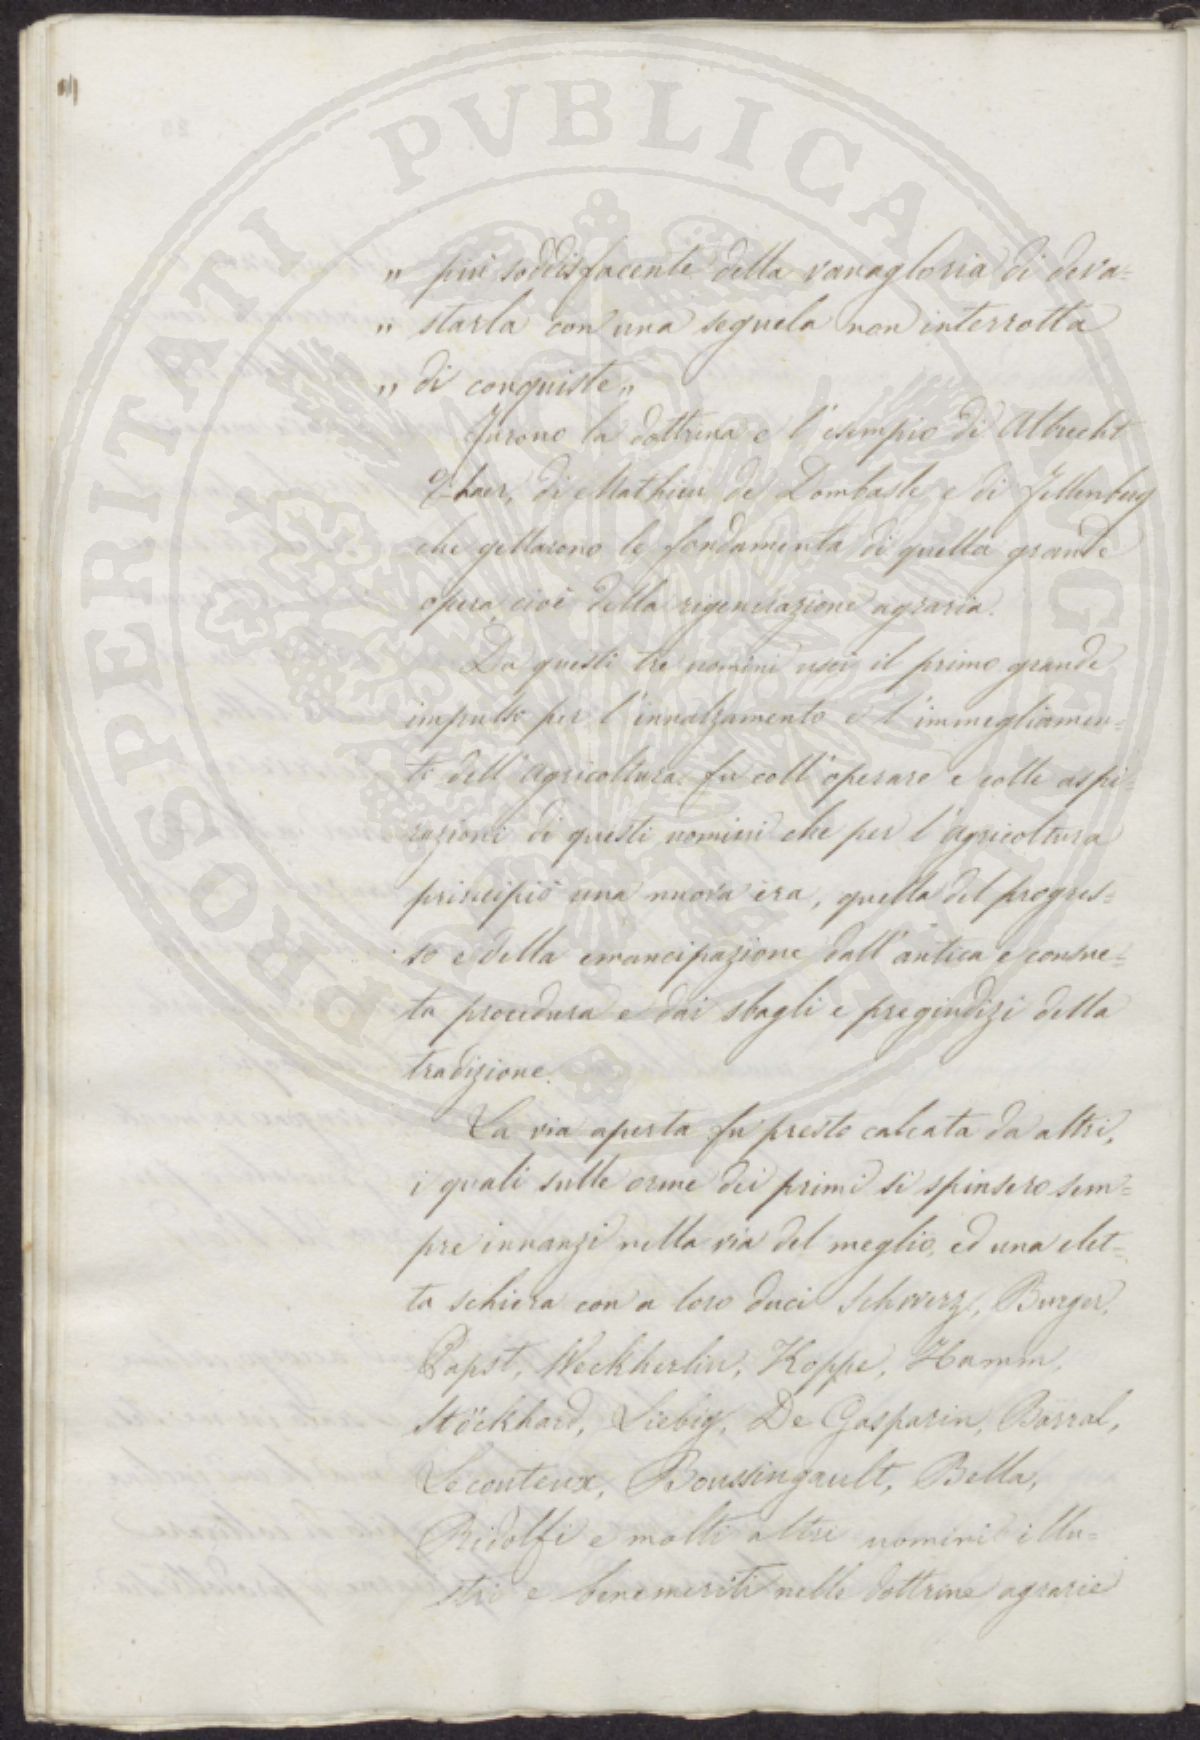 „ più soddisfacente della vanagloria di deva=
„ starla con una seguela non interrotta
„ di conquiste„
Furono la dottrina e l'esempio di Albrecht
Thaer, di Mathieu de Dombasle e di Fellenberg
che gettarono le fondamenta di quella grande
opera cioè della rigenerazione agraria.
Da questi tre uomini uscì il primo grande
impulso per l'innalzamento e l'immegliamen=
to dell'agricoltura. fu coll'operare e colle aspi=
razioni di questi uomini che per l'agricoltura
principiò una nuova era, quella del progres=
so e della emancipazione dall'antica e consue=
ta procedura e dai sbagli e pregiudizj della
tradizione.
La via aperta fu presto calcata da altri,
i quali sulle orme dei primi si spinsero sem=
pre innanzi nella via del meglio, ed una elet=
ta schiera con a loro duci Schwerz, Burger,
Papst, Weckherlin, Koppe, Hamm,
Stöckhard, Liebig, De Gasparin, Barral,
Lecouteux, Boussingault, Bella,
Ridolfi e molti altri uomini illu=
stri e benemeriti nelle dottrine agrarie
PROSPERITATI PVBLICAE AVGENDAE